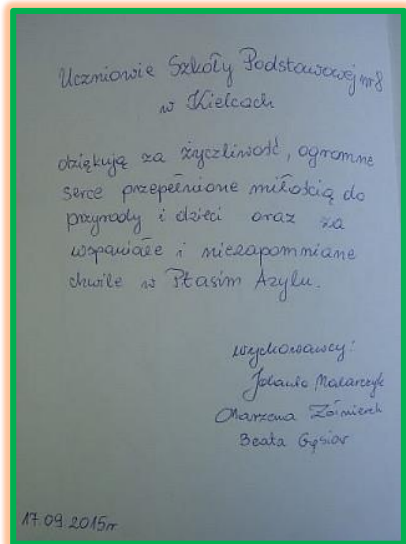 Uczniowie Szkoły Podstawowej nr 8
w Kielcach
dziękują za życzliwość, ogromne
serce przepełnione miłością do
przyrody i dzieci oraz za
wspaniałe i niezapomniane
chwile w Ptasim Azylu.
wychowawcy:
Jolanta Malarczyk
Marzena
Beata Gąsior
17.09.2015r